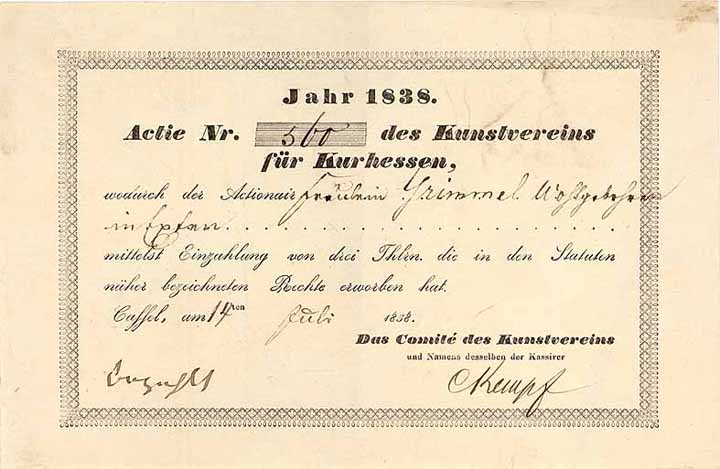 Jahr 1838.
Actie Nr. 560 des Kunstvereins
für Kurhessen,
wodurch der Actionair Fräulein Grimmel Wohlgebohren
in
mittelst Einzahlung von drei Thlrn. die in den Statuten
näher bezeichneten Rechte erworben hat.
Cassel, am 14ten Juli 1838.
Das Comité des Kunstvereins
und Namens desselben der Kassirer
CKempf